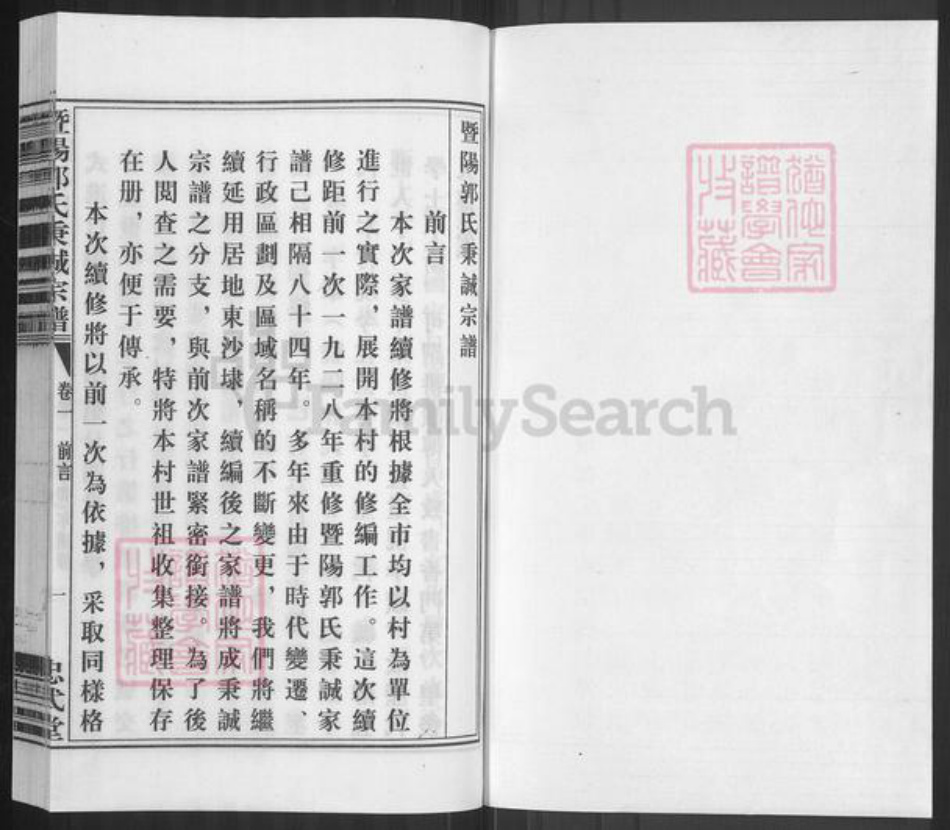 暨陽郭氏秉誠宗譜
前言
本次家譜續修將根據全市均以村為單位
進行之實際，展開本村的修編工作。這次續
修距前一次一九二八年重修暨陽郭氏秉誠家
譜己相隔八十四年。多年來由于時代變遷
行政區劃及區域名稱的不斷變更，我們將繼
續延用居地東沙埭，續編後之家譜將成秉誠
宗譜之分支，與前次家譜緊密銜接。為了後
人閱查之需要，特將本村世祖收集整理保存
在册，亦便于傳承。
本次續修將以前一次為依據，采取同樣格
暨陽郭氏秉誠宗譜
卷一 前言
一
忠武堂
猶他家
譜學會
收藏
猶他家
譜學會
收藏
FamilySearch